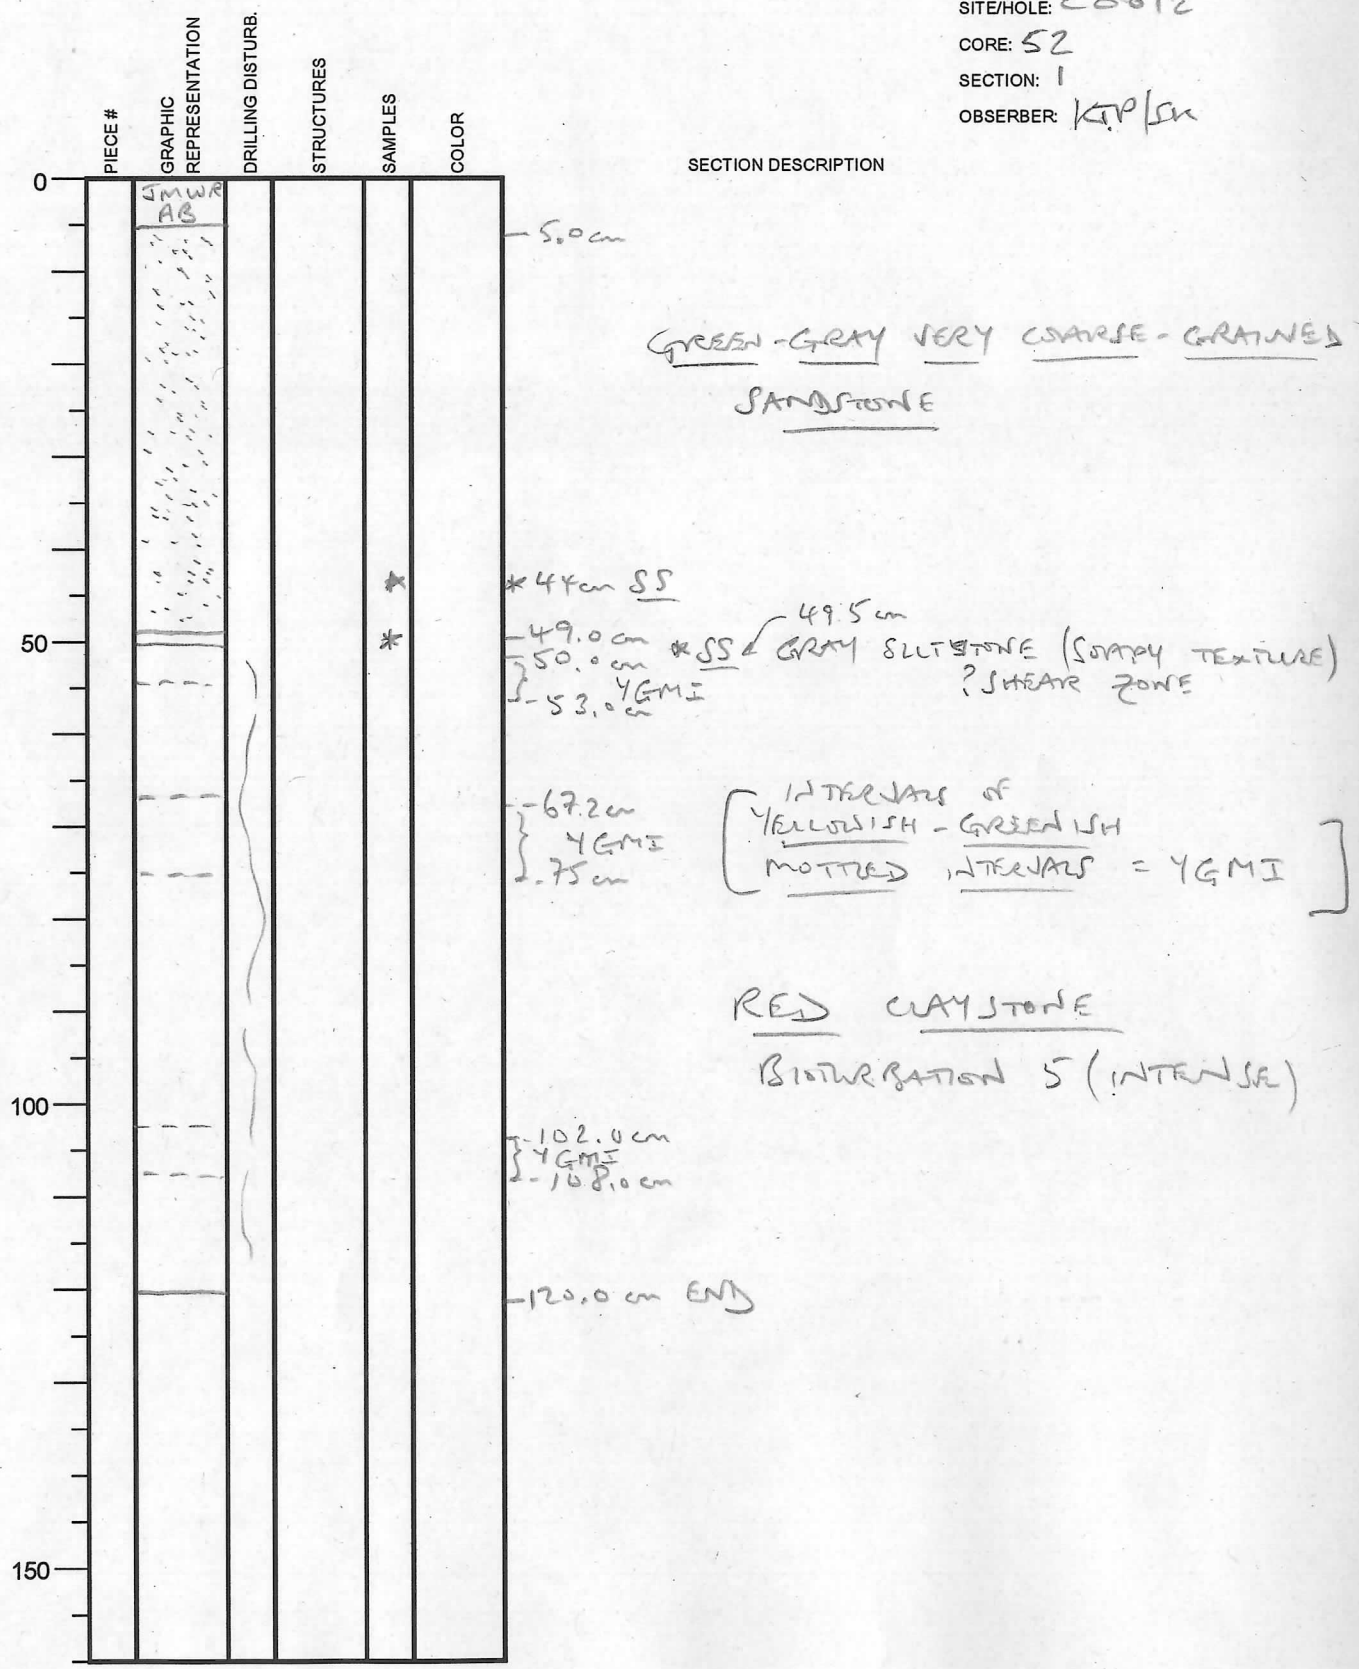 SITE/HOLE: C0012
CORE: 52
SECTION: 1
OBSERBER: KTP/SK
PIECE #
GRAPHIC REPRESENTATION
DRILLING DISTURB.
STRUCTURES
SAMPLES
COLOR
SECTION DESCRIPTION
0
JMWR
AB
- 5.0 cm
GREEN-GRAY VERY COARSE-GRAINED
SANDSTONE
* * 44 cm SS
- 49.5 cm
50
* - 49.0 cm * SS GRAY SILTSTONE (SOAPY TEXTURE)
- 50.0 cm ? SHEAR ZONE
YGMI
- 53.0 cm
INTERVALS OF
- 67.2 cm YELLOWISH-GREENISH
YGMI MOTTLED INTERVALS = YGMI
- 75 cm
RED CLAYSTONE
BIOTURBATION 5 (INTENSE)
100
- 102.0 cm
YGMI
- 108.0 cm
- 120.0 cm END
150